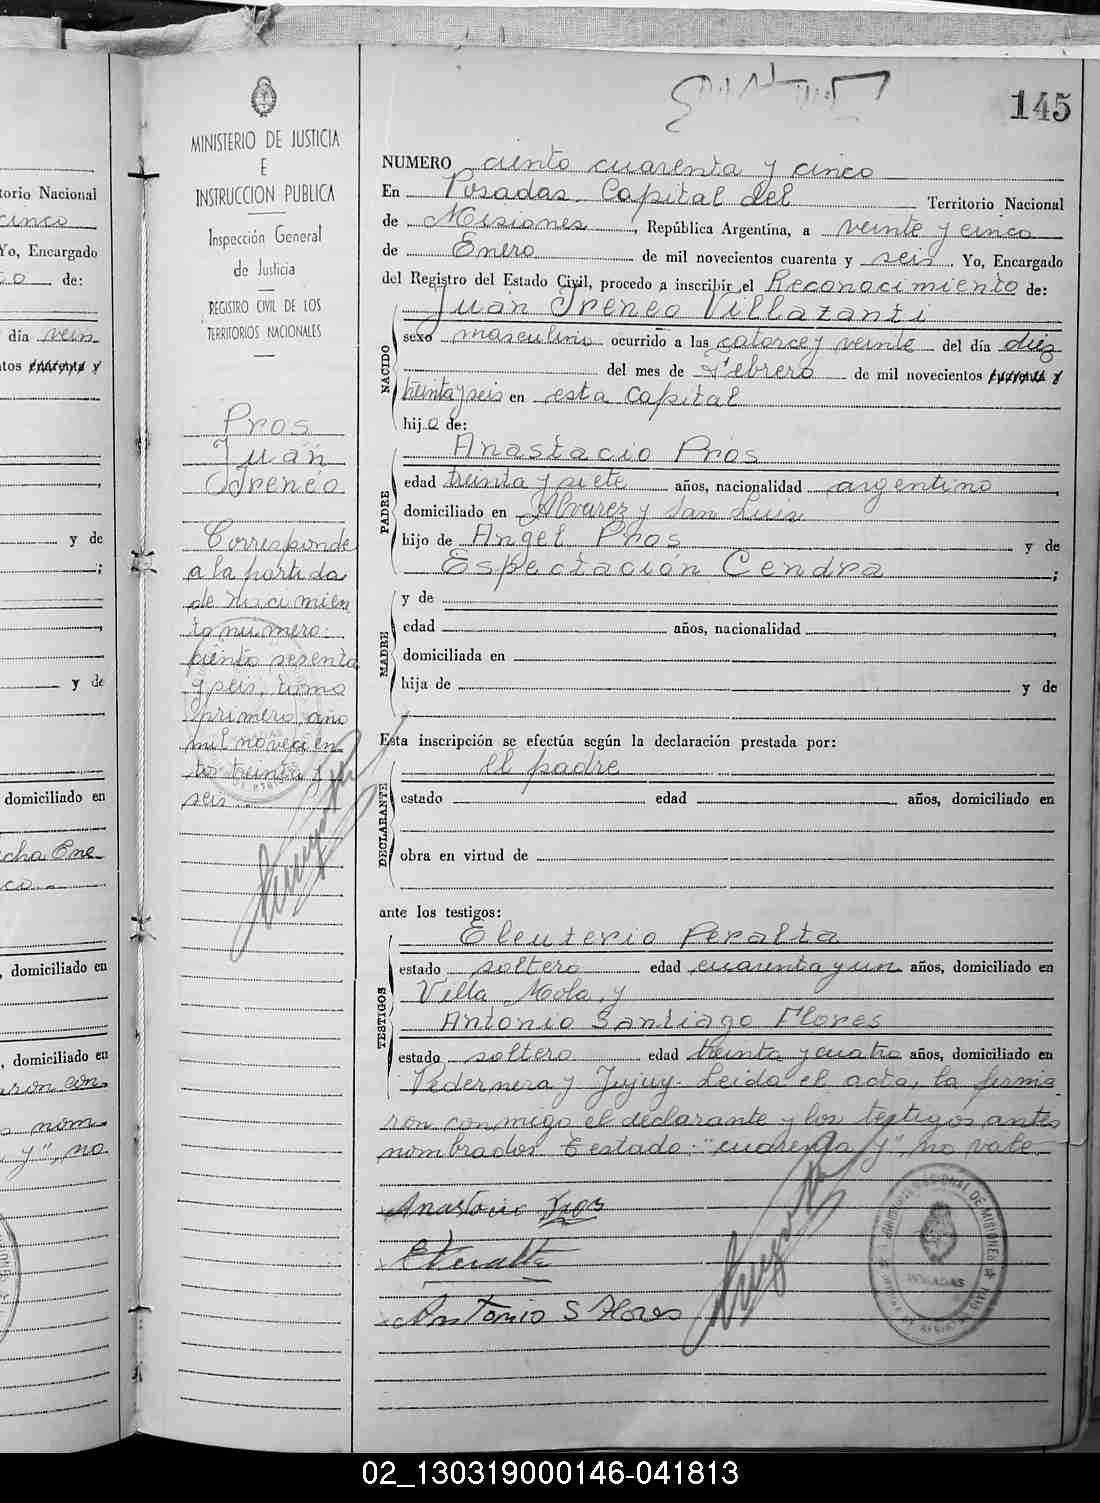 145
MINISTERIO DE JUSTICIA
E
INSTRUCCION PUBLICA
Inspección General
de Justicia
REGISTRO CIVIL DE LOS
TERRITORIOS NACIONALES
Pros
Juan
Ireneo
Corresponde
a la partida
de nacimien
to numero
ciento sesenta
y seis, tomo
primero, año
mil novecien
tos treinta y
seis.
NUMERO ciento cuarenta y cinco
En Posadas, Capital del Territorio Nacional
de Misiones, República Argentina, a veinte y cinco
de Enero de mil novecientos cuarenta y seis. Yo, Encargado
del Registro del Estado Civil, procedo a inscribir el Reconocimiento de:
Juan Ireneo Villazanti
NACIDO
sexo masculino ocurrido a las catorce y veinte del día diez
del mes de Febrero de mil novecientos cuarenta y
treinta y seis en esta Capital
hijo de:
PADRE
Anastacio Pros
edad treinta y siete años, nacionalidad argentino,
domiciliado en Alvarez y San Luis
hijo de Angel Pros y de
Espectación Cendra;
MADRE
y de
edad años, nacionalidad,
domiciliada en
hija de y de
Esta inscripción se efectúa según la declaración prestada por:
DECLARANTE
el padre
estado edad años, domiciliado en
obra en virtud de
ante los testigos:
TESTIGOS
Eleuterio Peralta
estado soltero edad cuarenta y un años, domiciliado en
Villa Mola, y
Antonio Santiago Flores
estado soltero edad treinta y cuatro años, domiciliado en
Pedernera y Jujuy. Leida el acta, la firma
ron conmigo el declarante y los testigos antes
nombrados. Testado: "cuarenta y", no vale.
Anastacio Pros
E Peralta
Antonio S Flores
POSADAS
torio Nacional
cinco
Yo, Encargado
de:
día vein
tos cuarenta y
y de
;
y de
domiciliado en
cha Ene
, domiciliado en
, domiciliado en
aron con
nom
y", no
02_130319000146-041813